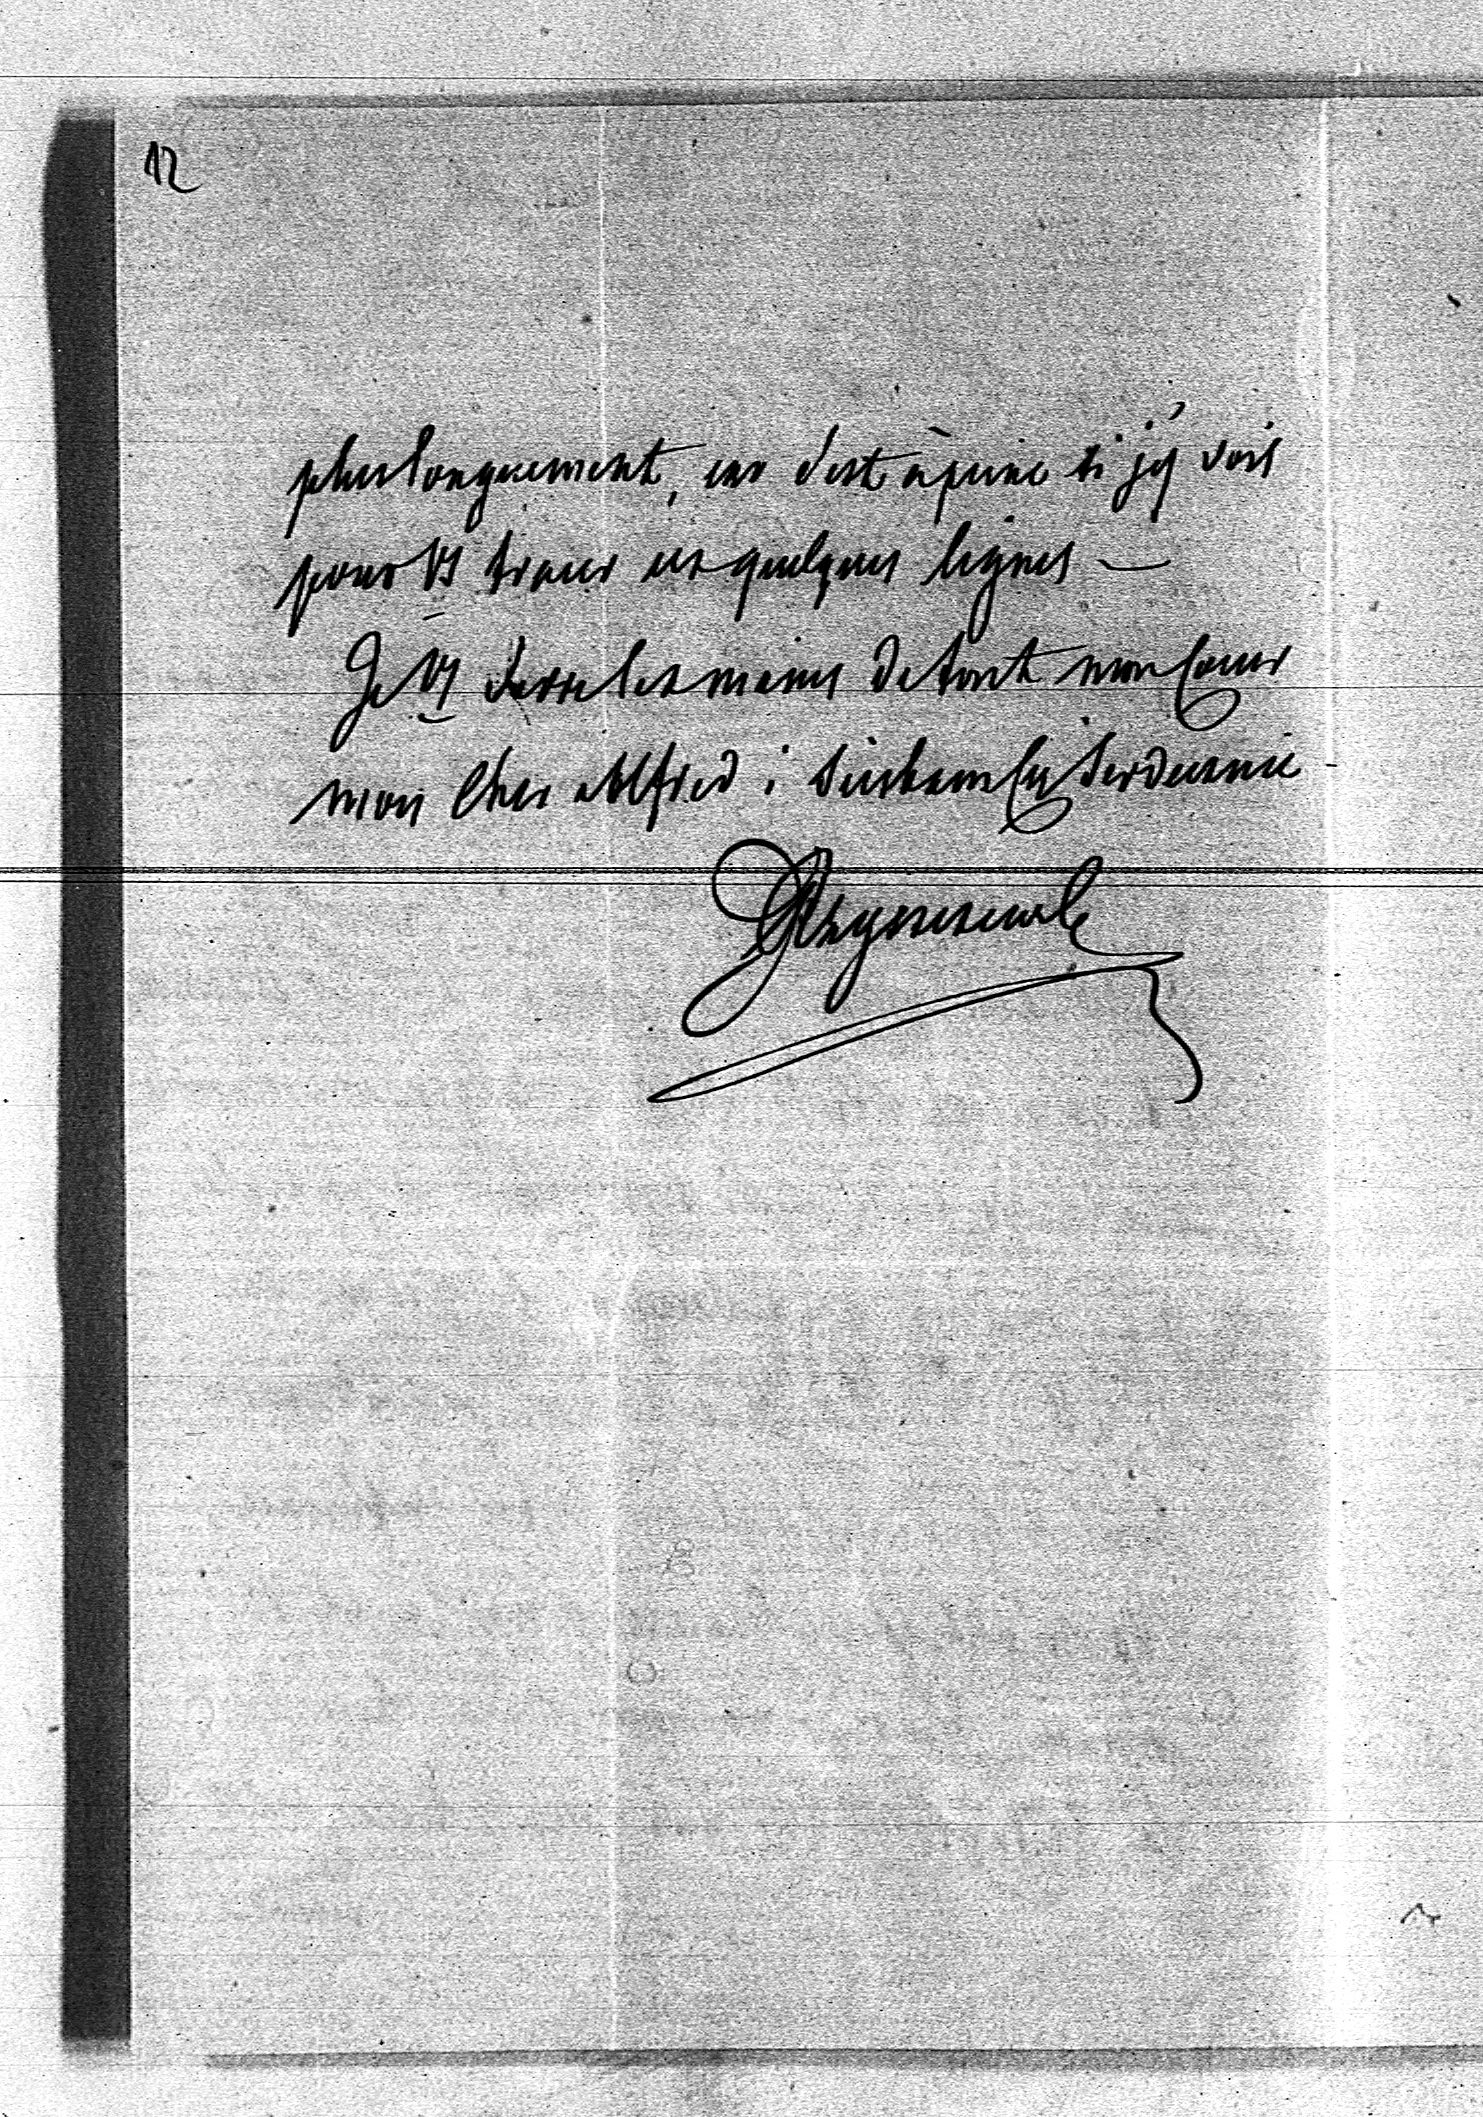 12
plus longuement, car c'est à peine si j'y vois
pour vs tracer ces quelques lignes —
Je vs serre les mains de tout mon Cœur
mon cher Alfred ;